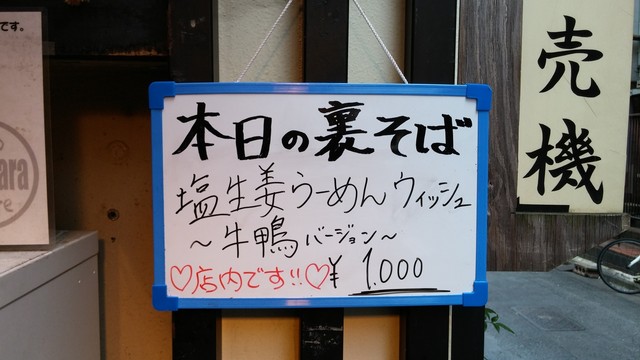 本日の裏そば
塩生姜らーめんウィッシュ
～牛鴨バージョン～
♡店内です!!♡¥1.000
売機
です。
ara
re